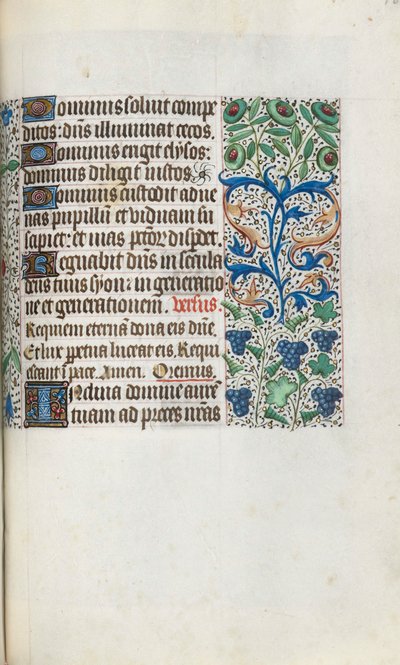 Dominus soluit compe
ditos: dn̄s illuminat cecos.
Dominus erigit elysos:
dominus diligit iustos
Dominus custodit adue
nas pupillū et viduam su
scipiet: et uias pctōr̄ disꝑdet.
Regnabit dn̄s in secula
deus tuus syon: in generatio
ne et generationem. versus.
Requiem eternā dona eis dn̄e.
Et lux ꝑpetua luceat eis. Requi
escant ī pace. Amen. Oremus.
Inclina domine aurē
tuam ad preces nr̄as